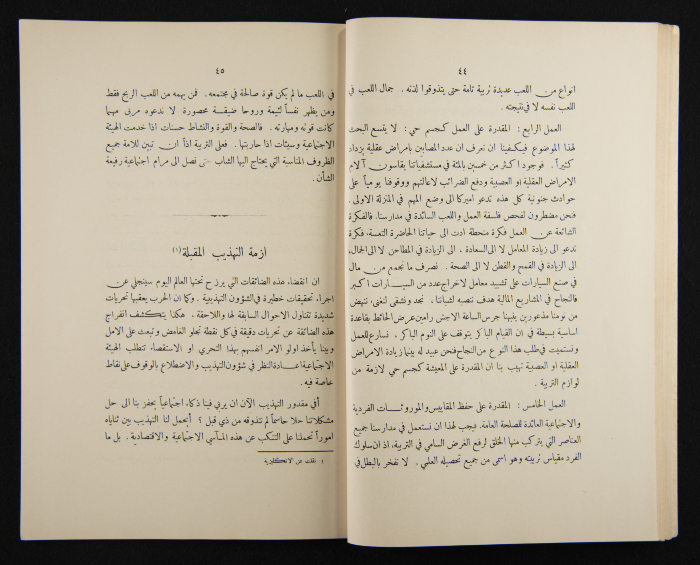 ٤٤
انواع من اللعب عديدة تربية تامة حتى يتذوقوا لذته. جمال اللعب في
اللعب نفسه لا في نتيجته.
العمل الرابع: المقدرة على العمل كجسم حي: لا يتسع البحث
لهذا الموضوع فيكفينا ان نعرف ان عدد المصابين بامراض عقلية يزداد
كثيراً. فوجود اكثر من خمسين بالمئة في مستشفياتنا يقاسون آلام
الامراض العقلية او العصبية ودفع الضرائب لاعالتهم ووقوفنا يومياً على
حوادث جنونية كل هذه تدعو اميركا الى وضع المهم في المنزلة الاولى.
فنحن مضطرون لفحص فلسفة العمل واللعب السائدة في مدارسنا. فالفكرة
الشائعة عن العمل فكرة منحطة ادت الى حياتنا الحاضرة التعسة. فكرة
تدعو الى زيادة المعامل لا الى السعادة. الى الزيادة في المطاحن لا الى الجمال،
الى الزيادة في القمح والقطن لا الى الصحة. نصرف ما نجمع من مال
في صنع السيارات على تشييد معامل لاخراج عدد من السيارات اكبر
فالنجاح في المشاريع المالية هدف ننصبه لشباننا. نجد ونشقى لنغنى، ننهض
من نومنا مذعورين ينبهنا جرس الساعة الاجش رامين عرض الحائط بقاعدة
اساسية بسيطة في ان القيام الباكر يتوقف على النوم الباكر. نسارع للعمل
ونستميت في طلب هذا النوع من النجاح فنحن عبيد له بينما زيادة الامراض
العقلية او العصبية تهيب بنا ان المقدرة على المعيشة كجسم حي لازمة من
لوازم التربية.
العمل الخامس: المقدرة على حفظ المقاييس والموروثات الفردية
والاجتماعية العائدة للصلحة العامة. فيجب لهذا ان نستعمل في مدارسنا جميع
العناصر التي يتركب منها الخلق لرفع الغرض السامي في التربية. اذ ان سلوك
الفرد مقياس تربيته وهو اسمى من جميع تحصيله العلمي. لا نفخر بالبطل في
٤٥
في اللعب ما لم يكن قوة صالحة في مجتمعه. فمن يهمه من اللعب الربح فقط
ومن يظهر نفساً لئيمة وروحا ضيقة محصورة لا ندعوه مربى مهما
كانت قوته ومهارته. فالصحة والقوة والنشاط حسنات اذا خدمت الهيئة
الاجتماعية وسيئات اذا حاربتها. فعلى التربية اذاً ان تبين للامة جميع
الظروف المناسبة التي يحتاج اليها الشاب حتى نصل الى مرام اجتماعية رفيعة
الشأن.
ازمة التهذيب المقبلة (١)
ان انقضاء هذه الضائقات التي يرزح تحتها العالم اليوم سينجلي عن
اجراء تحقيقات خطيرة في الشؤون التهذيبية. وكما ان الحرب يعقبها تحريات
شديدة تتناول الاحوال السابقة لها واللاحقة. هكذا يتكشف انفراج
هذه الضائقة عن تحريات دقيقة في كل نقطة تجلو الغامض وتبعث على الامل
وبينا يأخذ اولو الامر انفسهم بهذا التحري او الاستقصاء تتطلب الهيئة
الاجتماعية اعادة النظر في شؤون التهذيب والاضطلاع بالوقوف على نقاط
خاصة فيه.
أفي مقدور التهذيب الآن ان يربي فينا ذكاء اجتماعياً يحفز بنا الى حل
مشكلاتنا حلا حاسماً لم نتذوقه من ذي قبل؟ أيحمل لنا التهذيب بين ثناياه
اموراً تحملنا على التنكب عن هذه المآسي الاجتماعية والاقتصادية. بل ما
١ نقلت عن الانكليزية